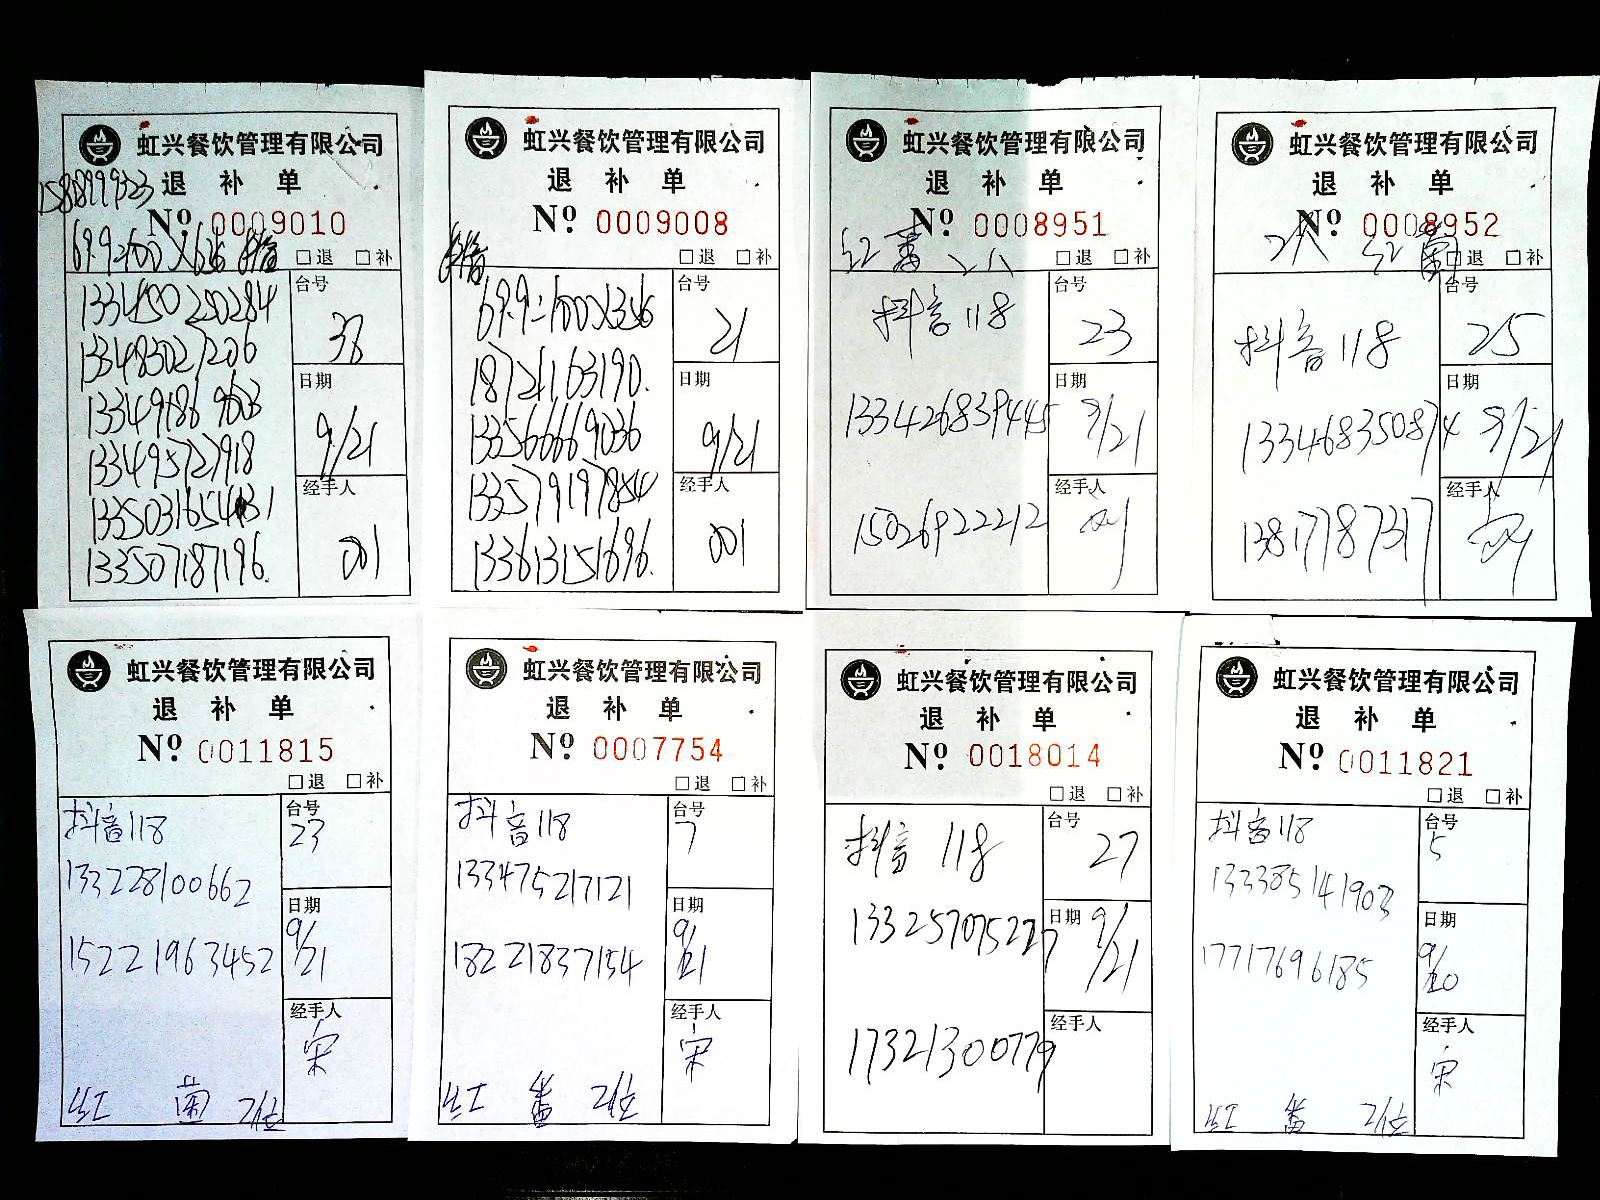 虹兴餐饮管理有限公司
退 补 单
15818999323
№ 0009010
69.9=100X6
□退 □补
台号
38
133450250284
133483027206
133491869603
133495727918
133507187196.
日期
9/21
经手人
001
虹兴餐饮管理有限公司
退 补 单
№ 0009008
抖音
□退 □补
69.9=100X3
台号
21
18721163190.
133566669036
133579197854
133613151696.
日期
9/21
经手人
001
虹兴餐饮管理有限公司
退 补 单
№ 0008951
红 番 2人
□退 □补
抖音118
台号
23
133426839445
15026922212
日期
9/21
经手人
虹兴餐饮管理有限公司
退 补 单
№ 0008952
2人 红
□退 □补
抖音118
台号
25
133468350874
13817787317
日期
9/21
经手人
虹兴餐饮管理有限公司
退 补 单
№ 0011815
□退 □补
抖音118
台号
23
133228100662
15221963452
日期
9/21
经手人
宋
红 菌 2位
虹兴餐饮管理有限公司
退 补 单
№ 0007754
□退 □补
抖音118
台号
7
133475217121
18221837154
日期
9/21
经手人
宋
红 番 2位
虹兴餐饮管理有限公司
退 补 单
№ 0018014
□退 □补
抖音118
台号
27
133257075227
17321300779
日期
9/21
经手人
虹兴餐饮管理有限公司
退 补 单
№ 0011821
□退 □补
抖音118
台号
5
133385141903
17717696185
日期
9/20
经手人
宋
红 番 2位